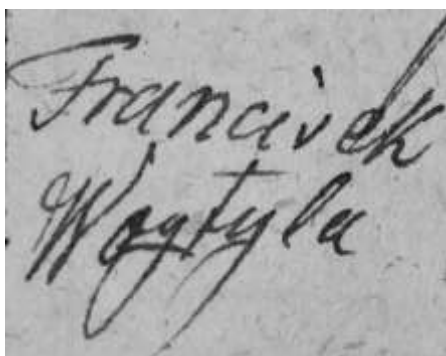 Francisek
Wojtyla